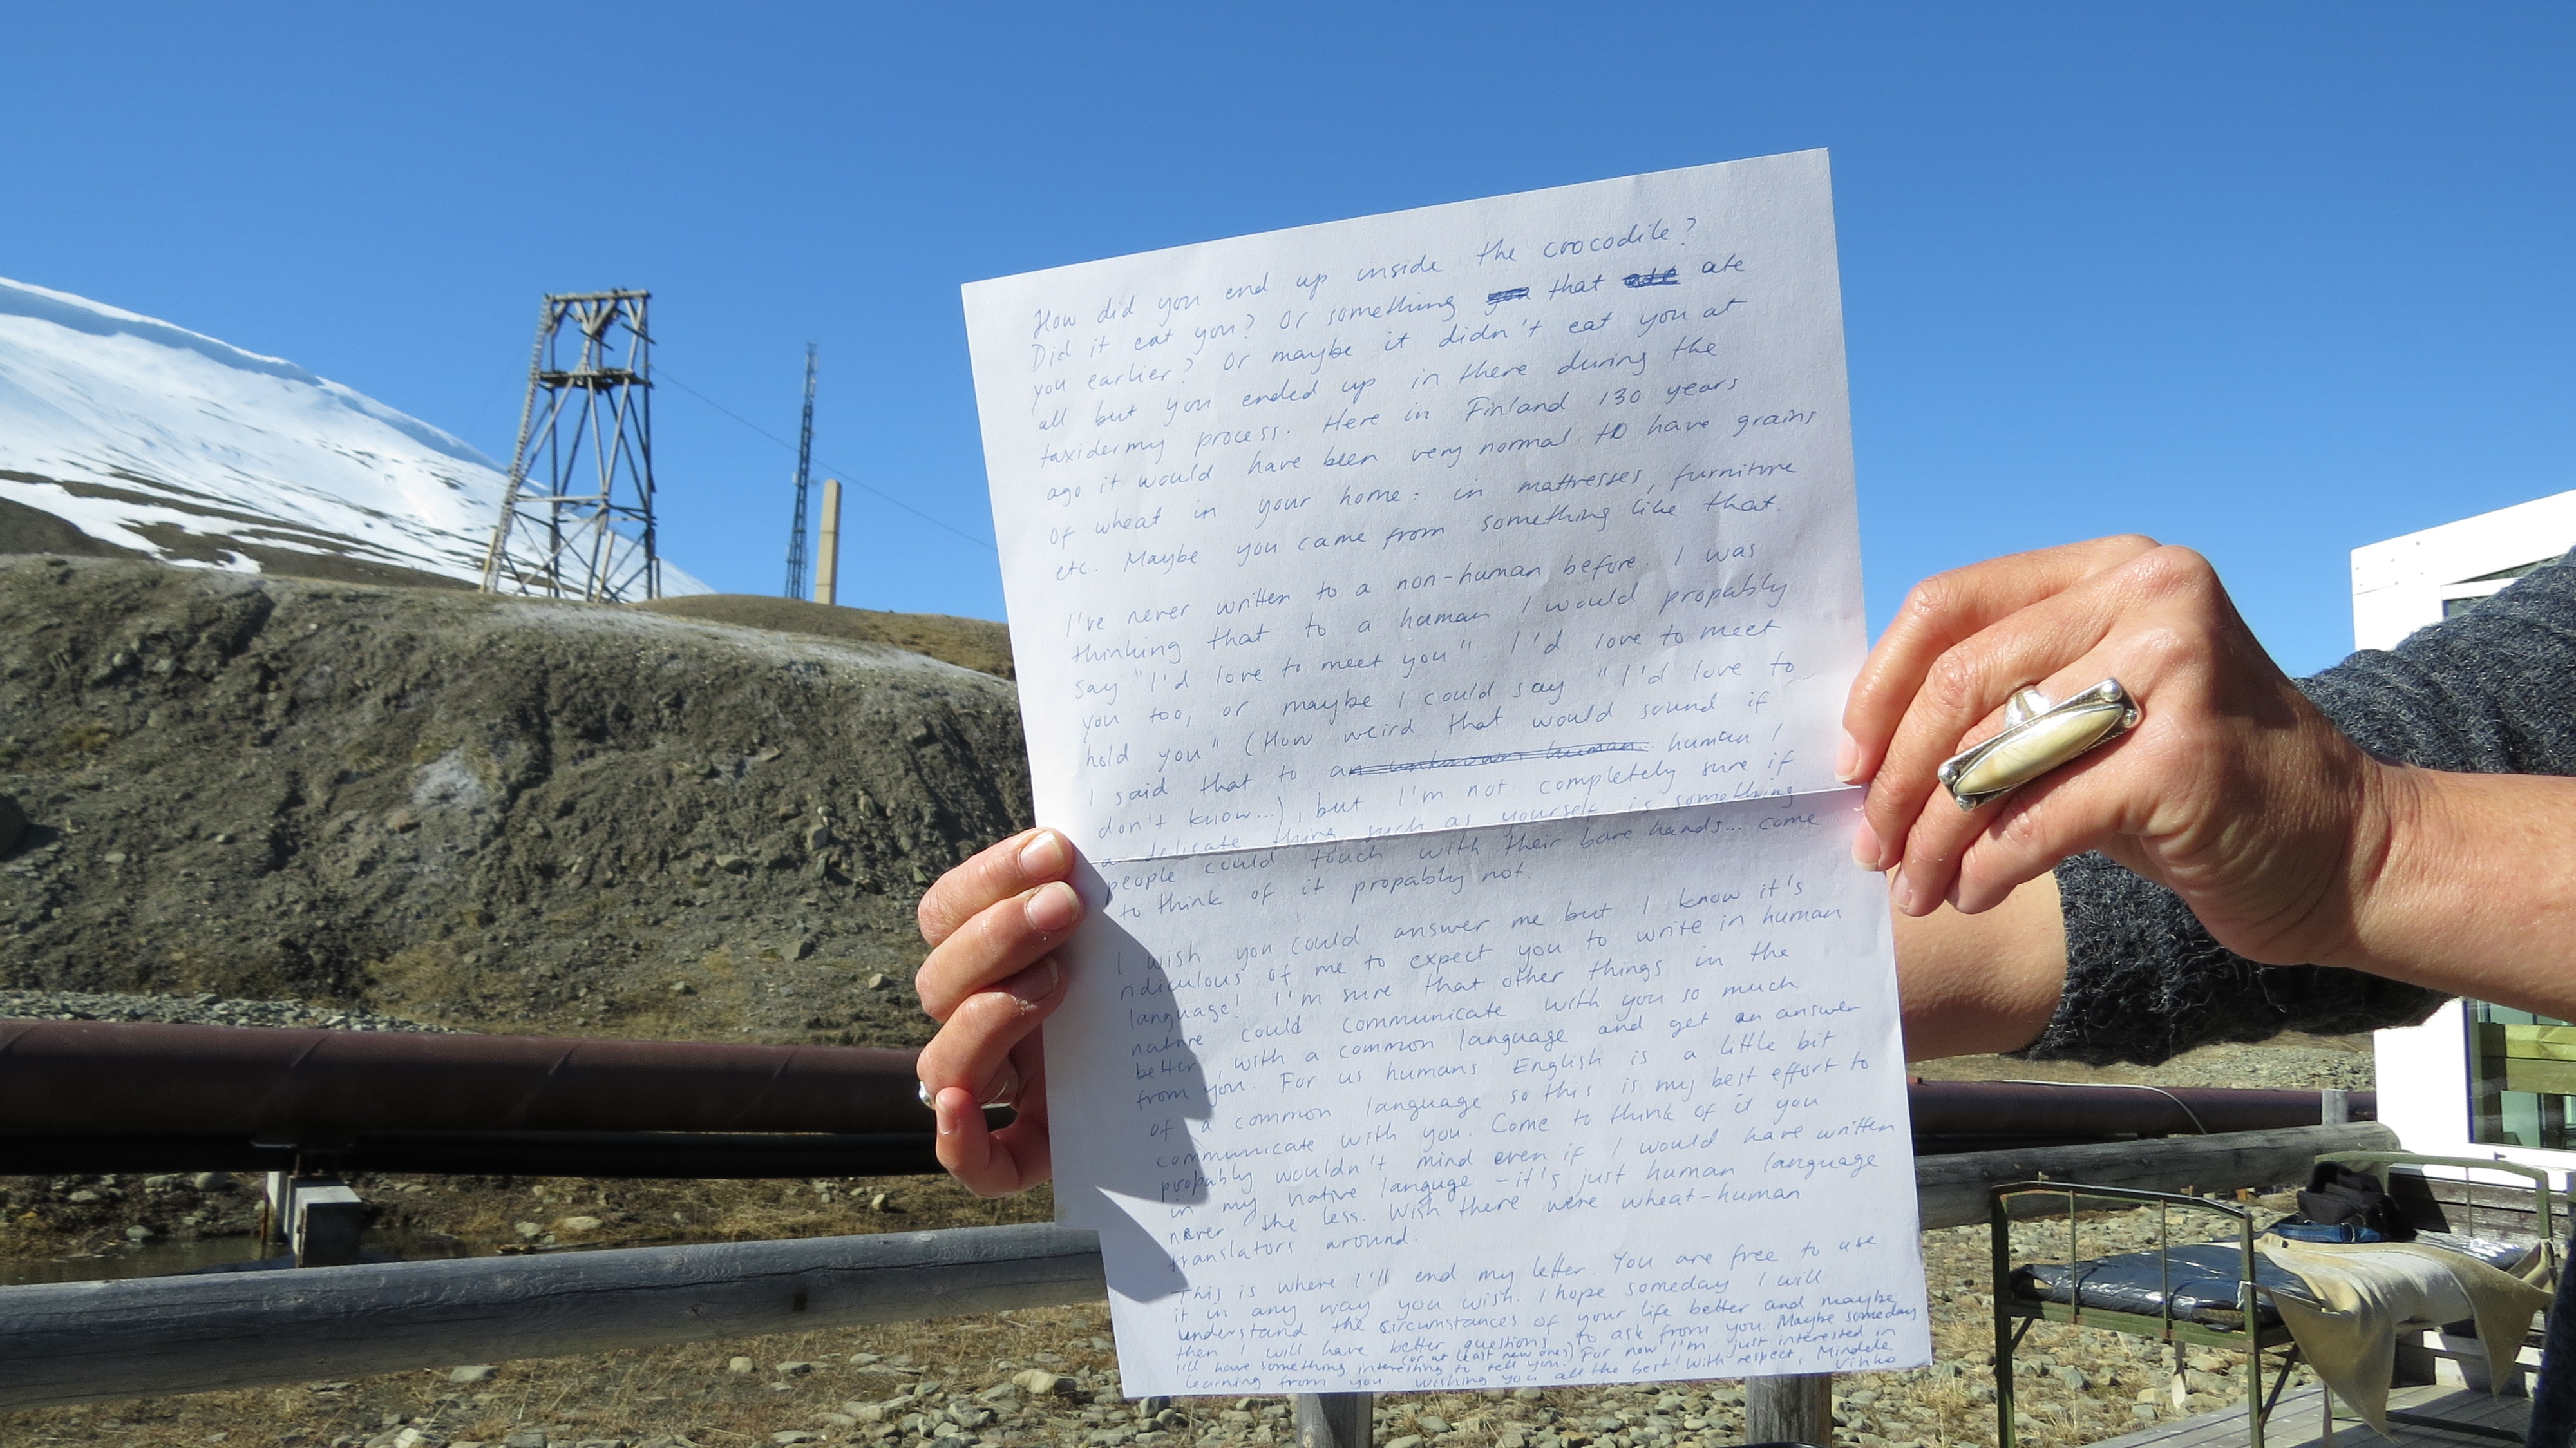 How did you end up inside the crocodile?
Did it eat you? Or something that ate
you earlier? Or maybe it didn't eat you at
all but you ended up in there during the
taxidermy process. Here in Finland 130 years
ago it would have been very normal to have grains
of wheat in your home: in mattresses, furniture
etc. Maybe you came from something like that.
I've never written to a non-human before. I was
thinking that to a human I would propably
say "I'd love to meet you". I'd love to meet
you too, or maybe I could say "I'd love to
hold you" (How weird that would sound if
I said that to an unknown human. human I
don't know...), but I'm not completely sure if
a delicate thing such as yourself is something
people could touch with their bare hands... come
to think of it propably not.
I wish you could answer me but I know it's
ridiculous of me to expect you to write in human
language! I'm sure that other things in the
nature could communicate with you so much
better, with a common language and get an answer
from you. For us humans English is a little bit
of a common language so this is my best effort to
communicate with you. Come to think of it you
propably wouldn't mind even if I would have written
in my native languge - it's just human language
never the less. Wish there were wheat-human
translators around.
This is where I'll end my letter. You are free to use
it in any way you wish. I hope someday I will
understand the circumstances of your life better and maybe
then I will have better questions to ask from you. Maybe someday
(or at least new ones)
I'll have something interesting to tell you. For now I'm just interested in
learning from you. Wishing you all the best! With respect, Mindele